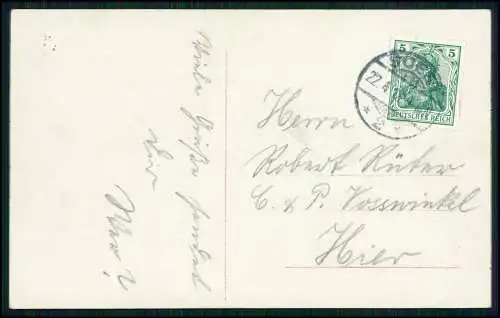 Viele Grüße sendet
Dir
Wer?
5 5
DEUTSCHES REICH
SOEST
22.4
* 2 *
Herrn
Robert Rüter
C. & P. Vosswinkel
Hier